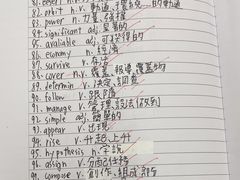 82. orbit n.v.
83. power n. 力量, 強權
84. significant adj. 重要的
85. avaliable adj. 可獲得的
86. economy n. 經濟
87. survive v. 存活
88. cover n.v. 覆蓋, 報導, 覆蓋物
89. determin v. 決定, 認定
90. follow v. 跟隨
91. manage v. 管理, 設法(做到)
92. simple adj. 簡單的
93. appear v. 出現
94. rise v. 升起, 上升
95. hypothesis n. 假說
96. assign v. 分配
compose v. 創作, 組成